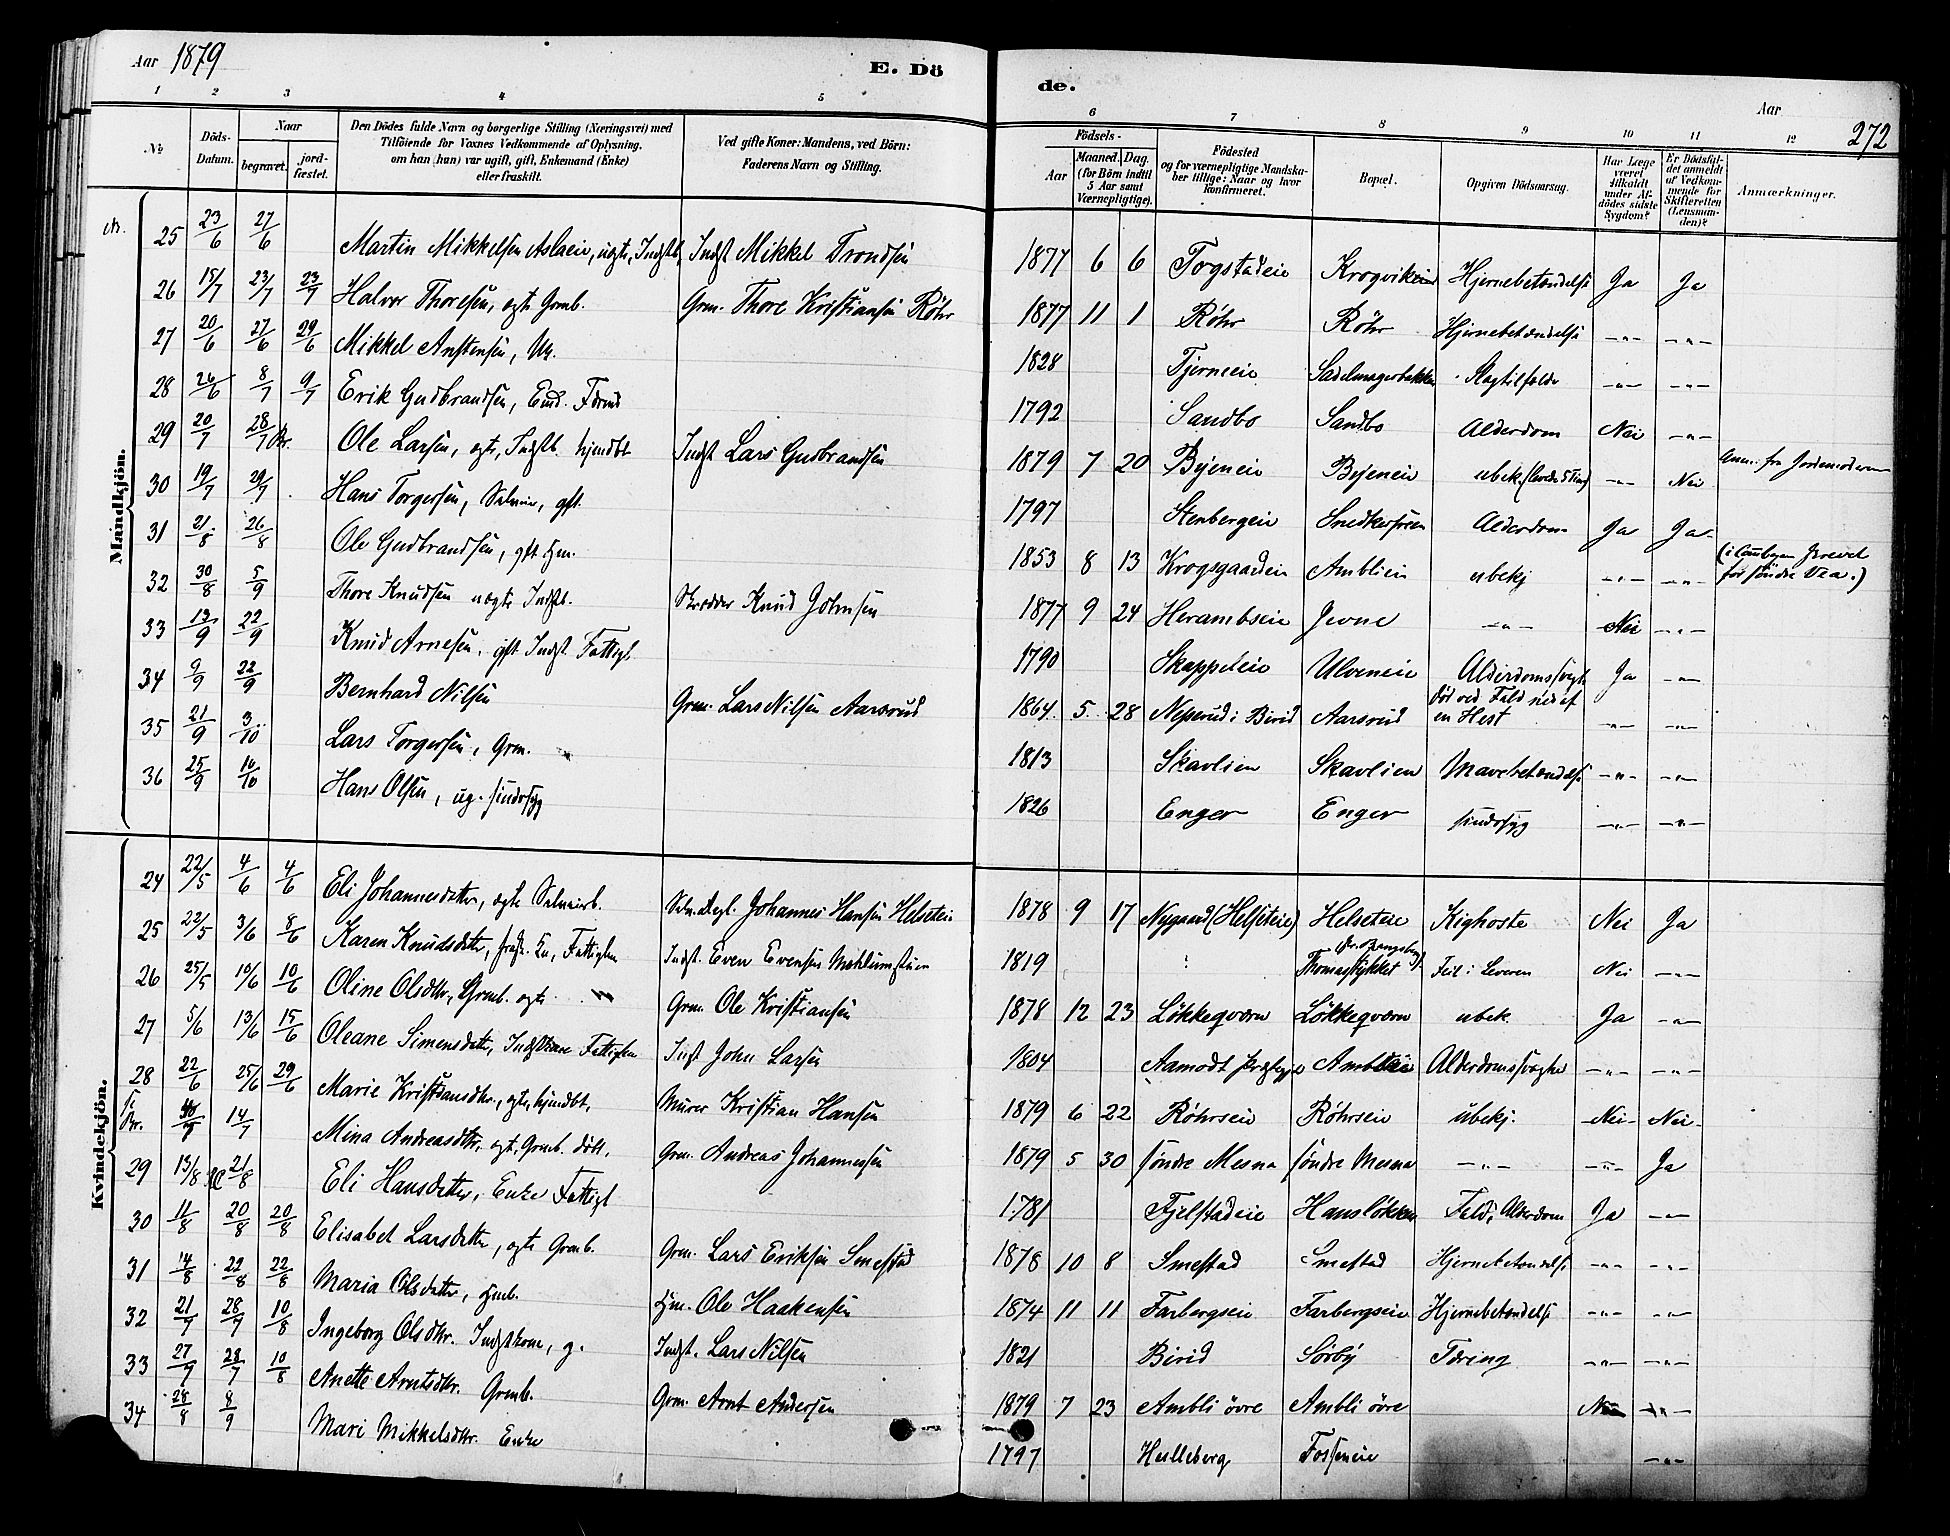 Aar 1879
E. Dö
de.
Aar
272
1 2 3 4 5 6 7 8 9 10 11 12
No
Döds-Datum.
Naar
begravet.
jord-fæstet.
Den Dödes fulde Navn og borgerlige Stilling (Næringsvei) med Tilföiende for Voxnes Vedkommende af Oplysning, om han (hun) var ugift, gift, Enkemand (Enke) eller fraskilt.
Ved gifte Koner: Mandens, ved Börn: Faderens Navn og Stilling.
Födsels-
Aar
Maaned. Dag.
(for Börn indtil 5 Aar samt Værnepligtige).
Födested og for værnepligtige Mandskaber tillige: Naar og hvor konfirmeret.
Bopæl.
Opgiven Dödsaarsag.
Har Læge været tilkaldt under Afdödes sidste Sygdom?
Er Dödsfaldet anmeldt af Vedkommende for Skifteretten (Lensmanden)?
Anmærkninger.
Mandkjön.
25 23/6 27/6 Martin Mikkelsen Aslaeie, uægte, Indstb. Indst Mikkel Trondsen 1877 6 6 Togstadeie Krogvikeie Hjernebetændelse Ja Ja
26 15/7 23/7 23/7 Halvor Thoresen, ægte Grmb. Grm. Thore Kristiansen Röhr 1877 11 1 Röhr Röhr Hjernebetændelse -"- -"-
27 20/6 27/6 29/6 Mikkel Anstensen, 1828 Tjerneeie Sadelmagerbakken Slagtilfælde -"- -"-
28 26/6 8/7 9/7 Erik Gudbrandsen, 1792 Sandbo Sandbo Alderdom Nei -"-
29 20/7 28/7 Ole Larsen, ægte, Indstb. hjemdbt Indst Lars Gudbrandsen 1879 7 20 Byeneie Byeneie ubek. -"- Nei
30 19/7 29/7 Hans Torgersen, gft. 1797 Stenbergeie Alderdom Ja Ja
31 21/8 26/8 Ole Gudbrandsen, gft Hm. 1853 8 13 Krogsgaardeie Amblien ubekj -"- -"- for söndre Vea.)
32 30/8 5/9 Thore Knudsen uægte Indstb. Skrædder Knud Johnsen 1877 9 24 Herambseie Jevne -"- Nei -"-
33 13/9 22/9 Knud Arnesen, gft Indst. Fattigl. 1790 Skappeleie Ulveneie Alderdomssvagh. Ja -"-
34 9/9 22/9 Bernhard Nilsen Grm. Lars Nilsen Aarsrud 1864. 5. 28 Neperud i Birid Aarsrud Död ved Fald ned af en Hest -"- -"-
35 21/9 3/10 Lars Torgersen, Grm. 1813 Skavlien Skavlien Mavebetændelse -"- -"-
36 25/9 10/10 Hans Olsen, ug. sindssyg 1826 Enger Enger sindssyg -"- -"-
Kvindekjön.
24 22/5 4/6 4/6 Eli Johannesdatter, ægte Johannes Hansen Helseteie 1878 9 17 Nygaard (Helseteie) Helseteie Kighoste Nei Ja
25 22/5 3/6 8/6 Karen Knudsdatter, Fattiglem Indst. Even Evensen 1819 Thomasstykket Feil i Leveren Nei -"-
26 25/5 10/6 10/6 Oline Olsdtr., Grmb. ægte Grm. Ole Kristiansen 1878 12 23 Lökkeqværn Lökkeqværn ubek. Ja -"-
27 5/6 13/6 15/6 Oleane Simensdatter, Indstkone Fattiglem Indst John Larsen 1804 Aamodt Ambleie Alderdomssvaghed -"- -"-
28 22/6 25/6 29/6 Marie Kristiansdtr., ægte, hjemdbt, Murer Kristian Hansen 1879 6 22 Röhrseie Röhrseie ubekj. Nei Nei
14/7 Mina Andreasdtr., ægt. Grmb. döbt. Grm. Andreas Johannessen 1879 5 30 söndre Mesna söndre Mesna -"- -"- Ja
29 13/8 21/8 Eli Hansdatter, Enke Fattigl 1781 Fjelstadeie Hanslökken Feld, Alderdom Ja -"-
30 11/8 20/8 20/8 Elisabet Larsdatter, ægte Grmb. Grm. Lars Eriksen Smestad 1878 10 8 Smestad Smestad Hjernebetændelse -"- -"-
31 14/8 22/8 22/8 Maria Olsdatter, Hmb. Hm. Ole Haakensen 1874 11 11 Farbergseie Farbergseie Hjernebetændelse -"- -"-
32 21/7 28/7 10/8 Ingeborg Olsdtr. Indstkone, g. Indst. Lars Nilsen 1821 Birid Sörby Tæring -"- -"-
33 27/7 28/7 10/8 Anette Arntsdtr. Grmb. Grm. Arnt Andersen 1879 7 23 Ambli övre Ambli övre Nei -"-
34 28/8 8/9 Mari Mikkelsdtr. Enke 1797 Hulleberg Fosseneie -"-